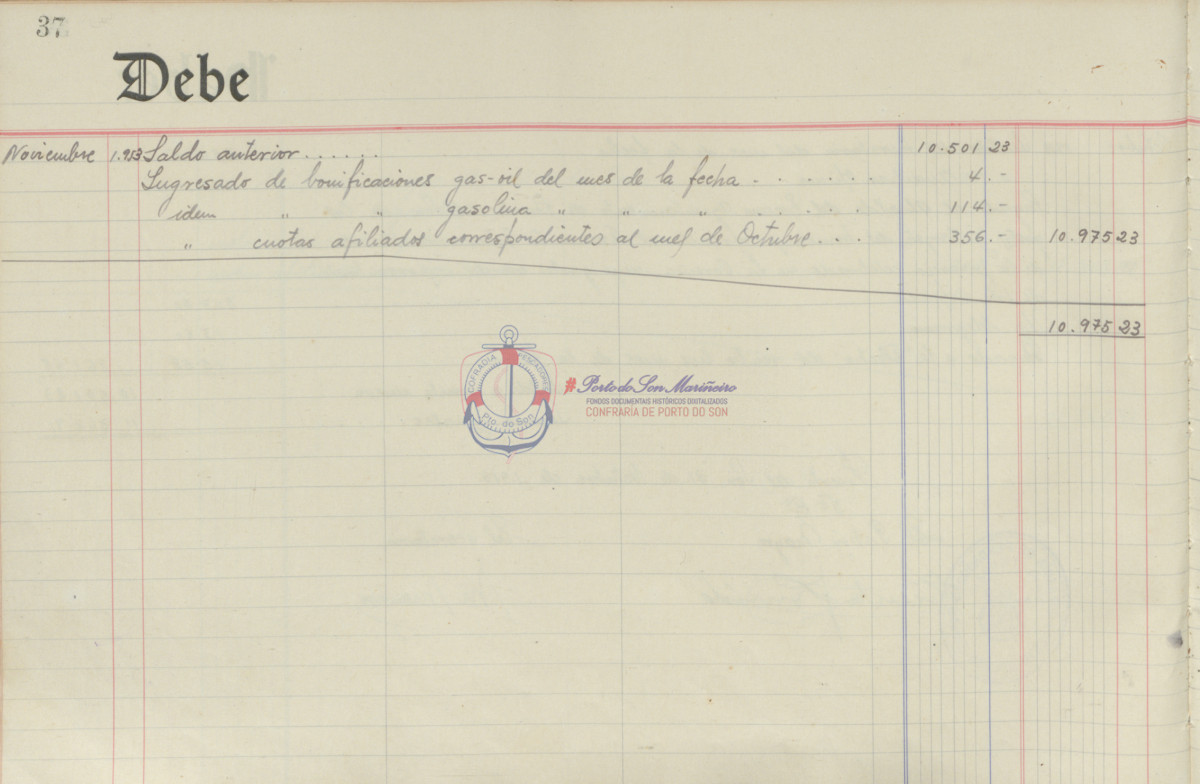 37
Debe
Noviembre 1.953 Saldo anterior...... 10.501 23
Ingresado de bonificaciones gas-oil del mes de la fecha ....... 4.-
idem " " gasolina " " " ...... 114.-
" cuotas afiliados correspondientes al mes de Octubre... 356.- 10.975 23
10.975 23
COFRADIA PESCADORES
Pto. do Son
#Porto do Son Mariñeiro
FONDOS DOCUMENTAIS HISTÓRICOS DIXITALIZADOS
CONFRARÍA DE PORTO DO SON